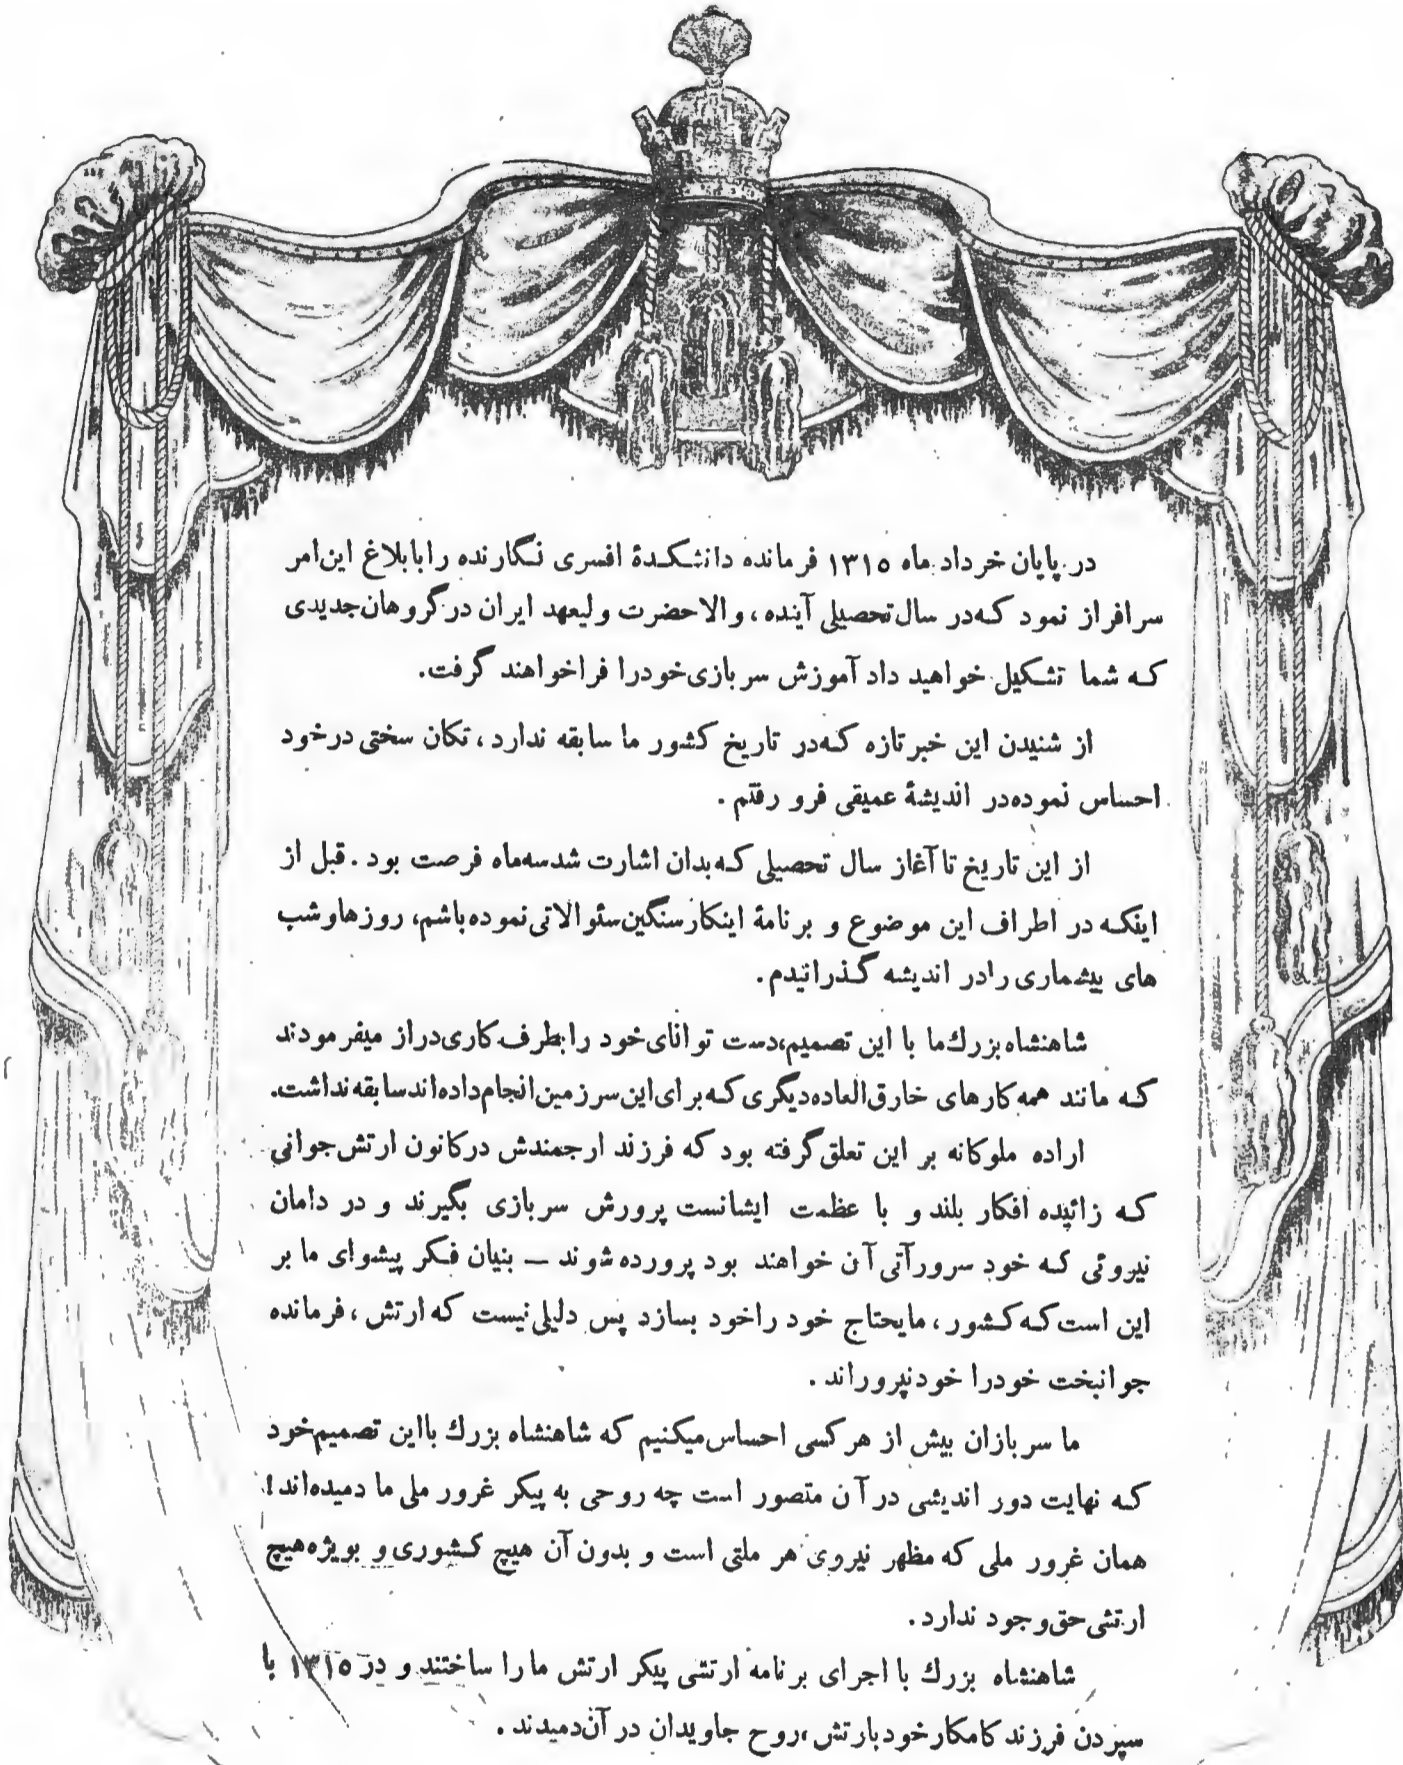 در پایان خرداد ماه ۱۳۱۵ فرمانده دانشکدهٔ افسری نگارنده را بابلاغ این امر
سرافراز نمود که در سال تحصیلی آینده، والاحضرت ولیعهد ایران در گروهان جدیدی
که شما تشکیل خواهید داد آموزش سربازی خود را فرا خواهند گرفت.
از شنیدن این خبر تازه که در تاریخ کشور ما سابقه ندارد، تکان سختی در خود
احساس نموده در اندیشهٔ عمیقی فرو رفتم.
از این تاریخ تا آغاز سال تحصیلی که بدان اشارت شد سه ماه فرصت بود. قبل از
اینکه در اطراف این موضوع و برنامهٔ اینکار سنگین سئوالاتی نموده باشم، روزها و شب
های بیشماری را در اندیشه گذرانیدم.
شاهنشاه بزرك ما با این تصمیم، دست توانای خود را بطرف کاری دراز میفرمودند
که مانند همه کارهای خارق العاده دیگری که برای این سرزمین انجام داده اند سابقه نداشت.
اراده ملوکانه بر این تعلق گرفته بود که فرزند ارجمندش در کانون ارتش جوانی
که زائیده افکار بلند و با عظمت ایشانست پرورش سربازی بگیرند و در دامان
نیروئی که خود سرور آتی آن خواهند بود پرورده شوند – بنیان فکر پیشوای ما بر
این است که کشور، مایحتاج خود را خود بسازد پس دلیلی نیست که ارتش، فرمانده
جوانبخت خود را خود نپروراند.
ما سربازان بیش از هر کسی احساس میکنیم که شاهنشاه بزرك با این تصمیم خود
که نهایت دور اندیشی در آن متصور است چه روحی به پیکر غرور ملی ما دمیده اند!
همان غرور ملی که مظهر نیروی هر ملتی است و بدون آن هیچ کشوری و بویژه هیچ
ارتشی حق وجود ندارد.
شاهنشاه بزرك با اجرای برنامه ارتشی پیکر ارتش ما را ساختند و در ۱۳۱۵ با
سپردن فرزند کامکار خود بارتش، روح جاویدان در آن دمیدند.